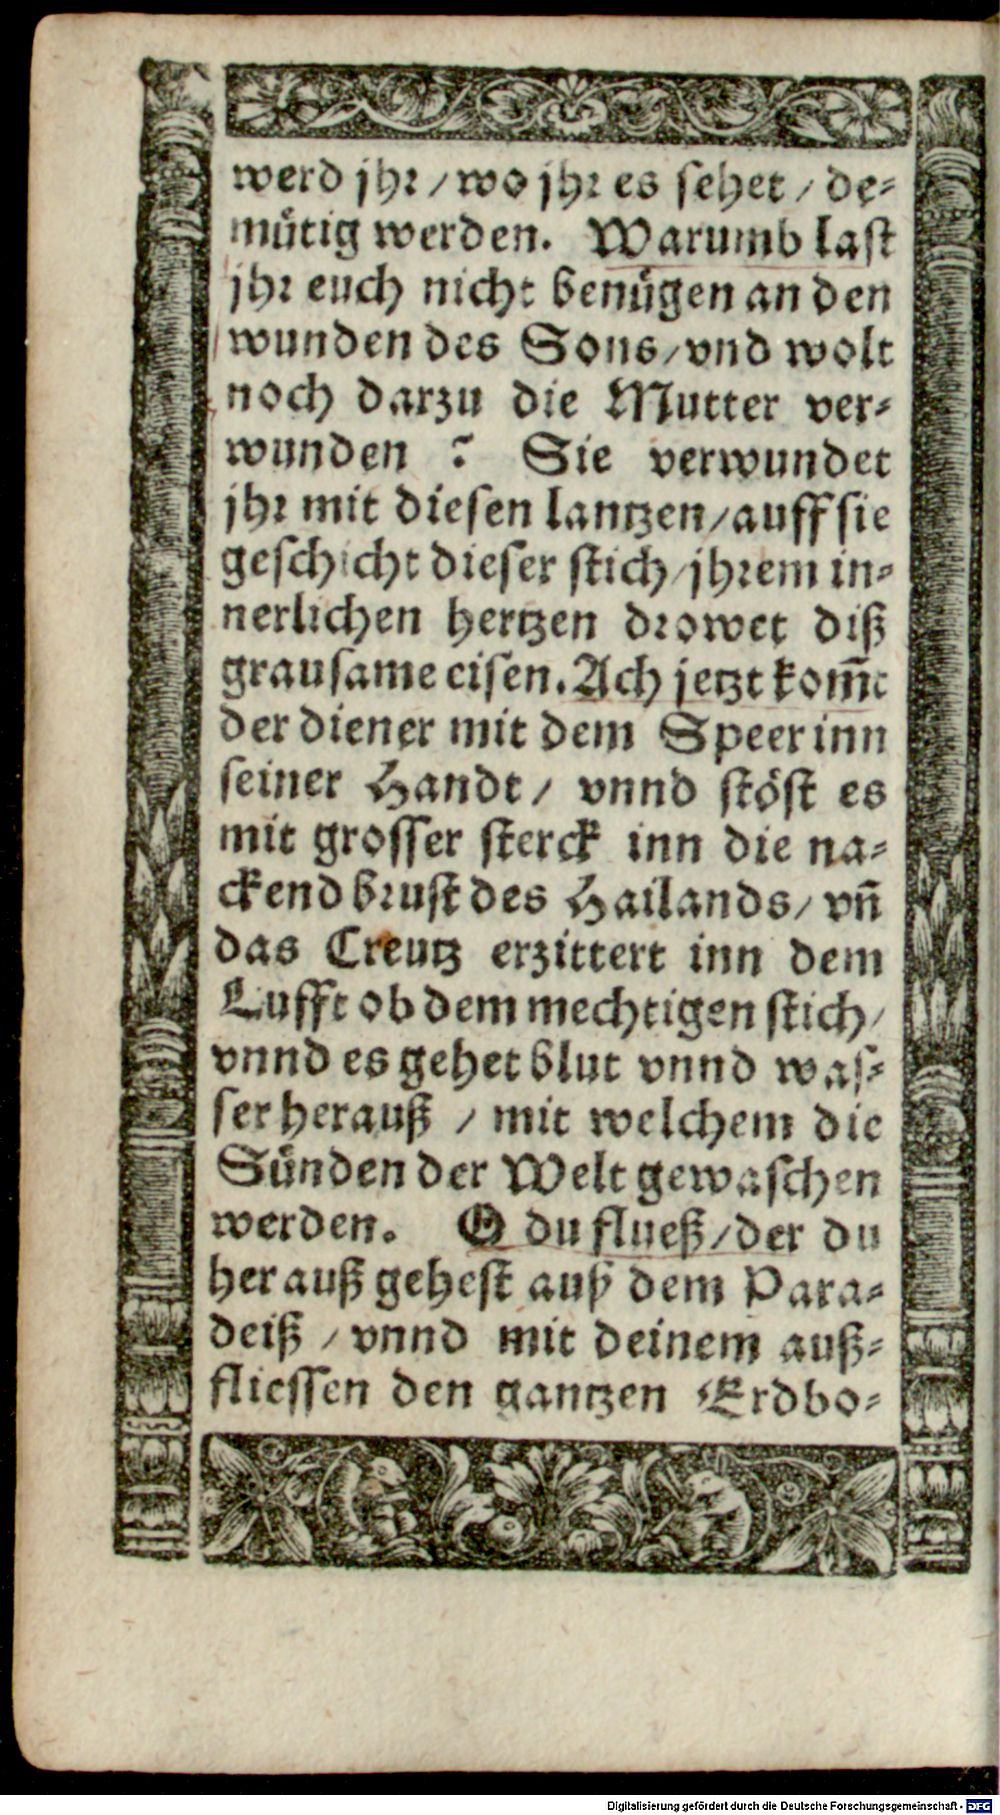 werd jhr / wo jhr es sehet / de⸗
mütig werden. Warumb last
jhr euch nicht benügen an den
wunden des Sons / vnd wolt
noch darzu die Mutter ver⸗
wunden ? Sie verwundet
jhr mit diesen lantzen / auff sie
geschicht dieser stich / jhrem in⸗
nerlichen hertzen drowet diß
grausame eisen. Ach jetzt kom̄t
der diener mit dem Speer inn
seiner Handt / vnnd stöst es
mit grosser sterck inn die na⸗
ckend brust des Hailands / vn̄
das Creutz erzittert inn dem
Lufft ob dem mechtigen stich /
vnnd es gehet blut vnnd was⸗
ser herauß / mit welchem die
Sünden der Welt gewaschen
werden. O du flueß / der du
her auß gehest auß dem Para⸗
deiß / vnnd mit deinem auß⸗
fliessen den gantzen Erdbo⸗
Digitalisierung gefördert durch die Deutsche Forschungsgemeinschaft - DFG